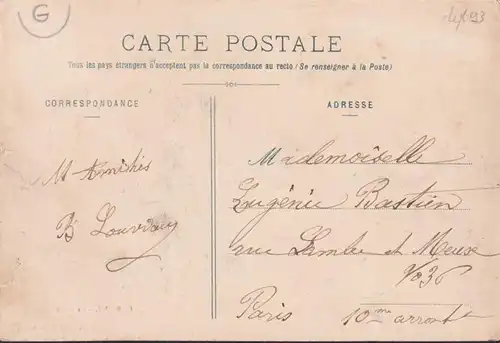 G
CARTE POSTALE
Tous les pays étrangers n'acceptent pas la correspondance au recto (Se renseigner à la Poste)
CORRESPONDANCE
ADRESSE
Mademoiselle
Eugénie Bastien
rue Sambre et Meuse
Paris 10me arrondt